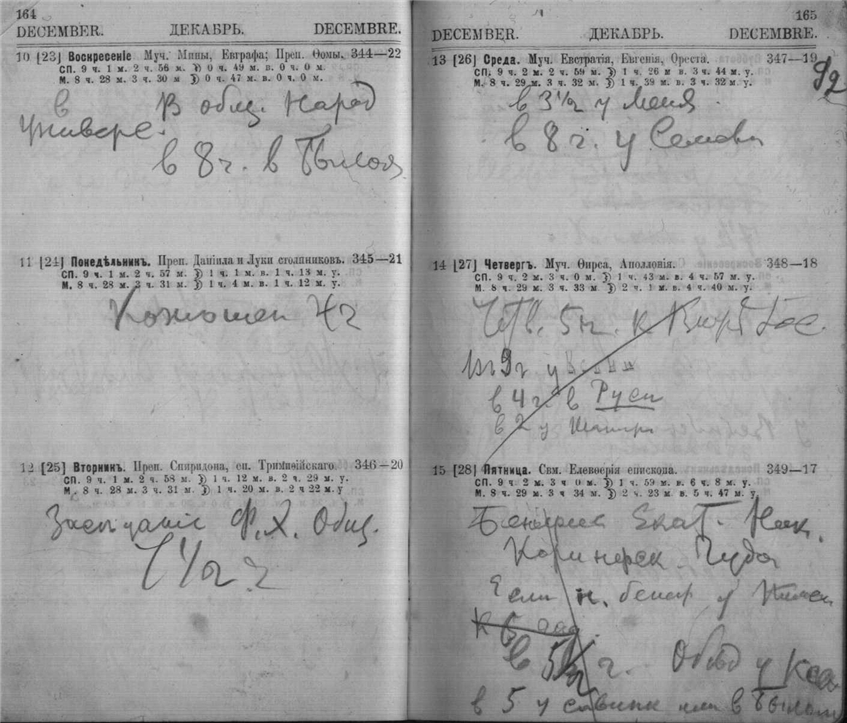 164
DECEMBER. ДЕКАБРЬ. DECEMBRE.
10 [23] Воскресеніе Муч. Мины, Евграфа; Преп. Ѳомы. 344—22
СП. 9 ч. 1 м. 2 ч. 56 м. ☽ 0 ч. 49 м. в. 0 ч. 0 м.
М. 8 ч. 28 м. 3 ч. 30 м ☽ 0 ч. 47 м. в. 0 ч. 0 м.
в В общ. Народ
Универс.
в 8 ч. в Былоя
11 [24] Понедѣльникъ. Преп. Даніила и Луки столпниковъ. 345—21
СП. 9 ч. 1 м. 2 ч. 57 м. ☽ 1 ч. 1 м. в. 1 ч. 13 м. у.
М. 8 ч. 28 м. 3 ч. 31 м. ☽ 1 ч. 4 м. в. 1 ч. 12 м. у.
12 [25] Вторникъ. Преп. Спиридона, еп. Тримиѳійскаго. 346—20
СП. 9 ч. 1 м. 2 ч. 58 м. ☽ 1 ч. 12 м. в. 2 ч. 29 м. у.
М. 8 ч. 28 м. 3 ч. 31 м. ☽ 1 ч. 20 м. в. 2 ч 22 м. у
Засѣданіе Ф. Х. Общ.
7 1/2 ч
165
DECEMBER. ДЕКАБРЬ. DECEMBRE.
13 [26] Среда. Муч. Евстратія, Евгенія, Ореста. 347—19
СП. 9 ч. 2 м. 2 ч. 59 м. ☽ 1 ч. 26 м в. 3 ч. 44 м. у.
М. 8 ч. 29 м. 3 ч. 32 м. ☽ 1 ч. 39 м. в. 3 ч. 32 м. у.
92
в 3 1/2 у меня
в 8 ч. у Семева
14 [27] Четвергъ. Муч. Ѳирса, Аполлонія. 348—18
СП. 9 ч. 2 м. 3 ч. 0 м. ☽ 1 ч. 43 м. в. 4 ч. 57 м. у.
М. 8 ч. 29 м. 3 ч. 33 м. ☽ 2 ч. 1 м. в. 4 ч. 40 м. у.
Четв. 5 ч. к
в 9 ч у
в 4 ч. в Руси
в 2 у
15 [28] Пятница. Свм. Елевѳерія епископа. 349—17
СП. 9 ч. 2 м. 3 ч 0 м. ☽ 1 ч. 59 м. в. 6 ч. 8 м. у.
М. 8 ч. 29 м. 3 ч 34 м. ☽ 2 ч. 23 м. в. 5 ч. 47 м. у.
Бенефис Екат. Ник.
Корчнерск. Чуда
Если н. бенеф у
в 5 1/2 ч. Обѣд у
в 5 у или в Былом